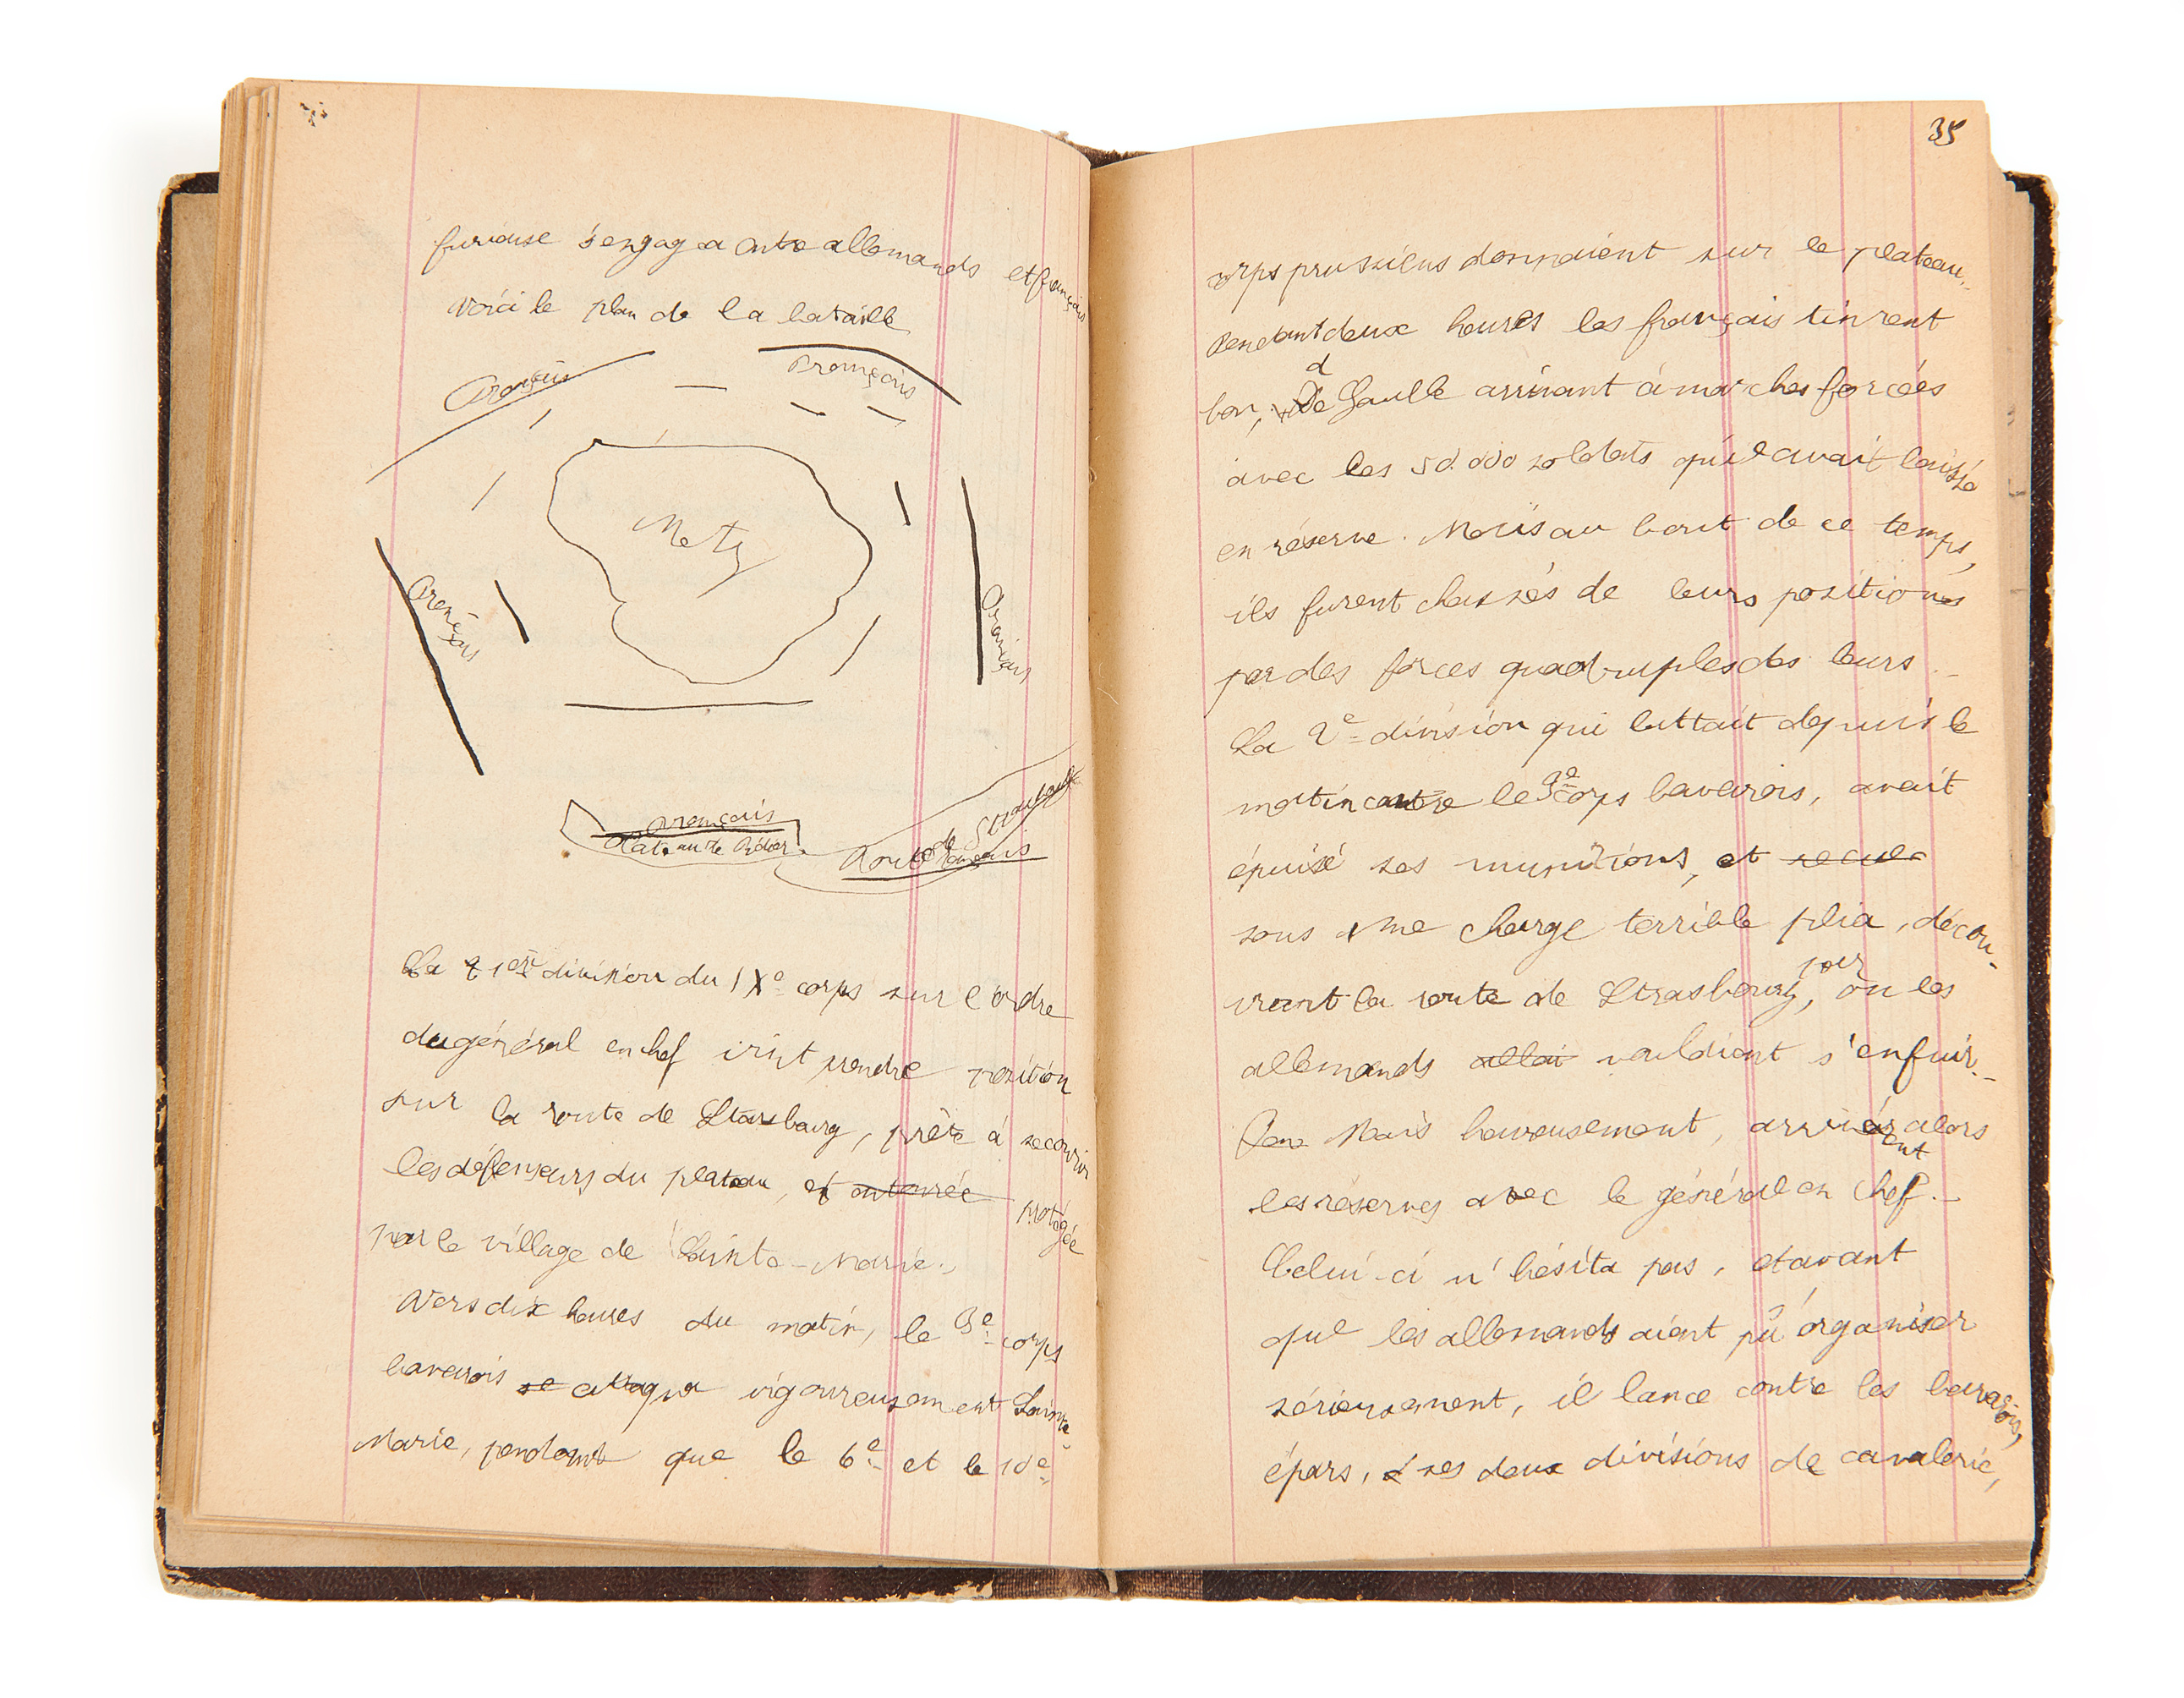 furieuse s'engagea entre allemands et français
voici le plan de la bataille
Français
Français
Metz
Français
Français
Français
Plateau de
Route de Strasbourg
Français
La 1ère division du IXe corps sur l'ordre
du général en chef vint prendre position
sur la route de Strasbourg, prête à secourir
les défenseurs du plateau, et entourée protégée
par le village de Sainte-Marie.
Vers dix heures du matin, le 3e corps
bavarois se attaqua vigoureusement Sainte-
Marie, pendant que le 6e et le 10e
35
corps prussiens donnaient sur le plateau.
Pendant deux heures les français tinrent
bon, de Gaulle arrivant à marches forcées
avec les 50.000 soldats qu'il avait laissé
en réserve. Mais au bout de ce temps,
ils furent chassés de leurs positions
par des forces quadruples des leurs.
La 2e division qui luttait depuis le
matin contre le 3e corps bavarois, avait
épuisé ses munitions, et recula
sous une charge terrible plia, décou-
vrant la route de Strasbourg, par où les
allemands allai voulaient s'enfuir.
Mais heureusement, arrivèrent alors
les réserves avec le général en chef.
Celui-ci n'hésita pas, et avant
que les allemands aient pû s'organiser
sérieusement, il lance contre les bavarois,
épars, ses deux divisions de cavalerie,